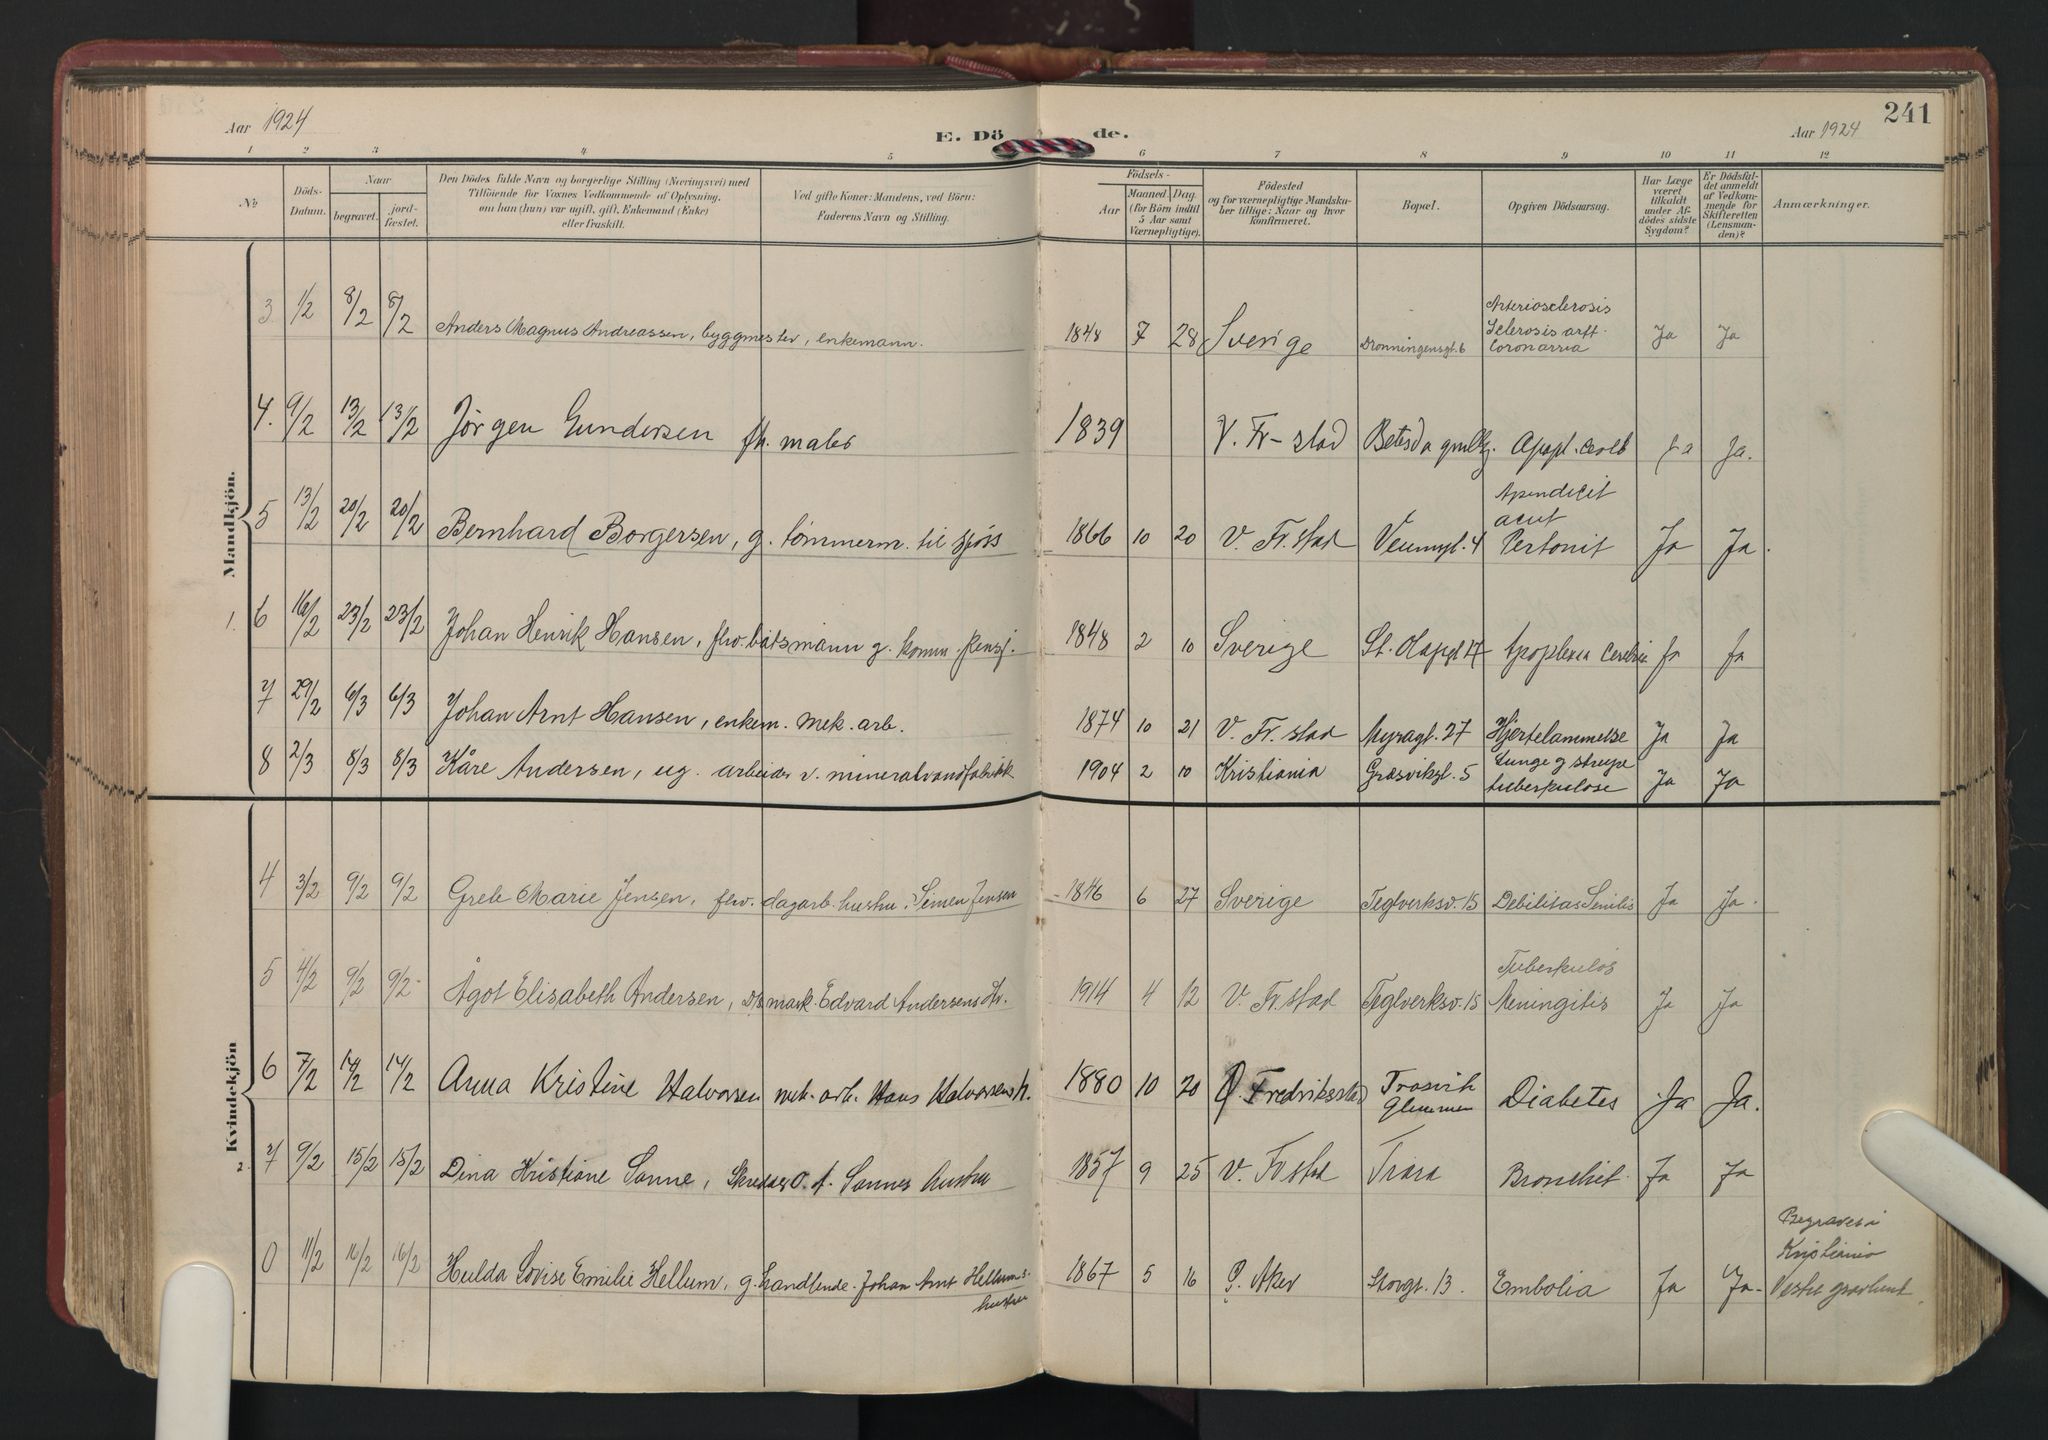 241
Aar 1924
E. Döde.
Aar 1924
1 2 3 4 5 6 7 8 9 10 11 12
No
Döds-Datum.
Naar
begravet.
jordfæstet.
Den Dödes fulde Navn og borgerlige Stilling (Næringsvei) med
Tilföiende for Voxnes Vedkommende af Oplysning,
om han (hun) var ugift, gift, Enkemand (Enke)
eller fraskilt.
Ved gifte Koner: Mandens, ved Börn:
Faderens Navn og Stilling.
Födsels-
Aar
Maaned. Dag.
(for Börn indtil
5 Aar samt
Værnepligtige).
Födested
og for værnepligtige Mandskaber tillige: Naar og hvor
konfirmeret.
Bopæl.
Opgiven Dödsaarsag.
Har Læge
været
tilkaldt
under Afdödes sidste
Sygdom?
Er Dödsfaldet anmeldt
af Vedkommende for
Skifteretten
(Lensmanden)?
Anmærkninger.
Mandkjön.
3 1/2 8/2 8/2 Anders Magnus Andreassen, byggmester, enkemann. 1848 7 28 Sverige Dronningensgt. 6 Arteriosclerosis Sclerosis artt. Coronarria Ja Ja
4. 9/2 13/2 13/2 Jørgen Gundersen fh. maler 1839 V. Fr-stad Betesda gmlhj. Apopl. cereb Ja Ja.
5 13/2 20/2 20/2 Bernhard Borgersen, g. tömmerm. til sjøs 1866 10 20 V. Fr.stad Veumgt. 4 Apendicit acut Pertonit Ja Ja.
1. 6 16/2 23/2 23/2 Johan Henrik Hansen, fhv. båtsmann g. komm. pensj. 1848 2 10 Sverige St. Olapgt 17 Apoplexia Cerebri Ja Ja
7 29/2 6/3 6/3 Johan Arnt Hansen, enkem. mek. arb. 1874 10 21 V. Fr.stad Myragt. 27 Hjertelammelse Ja Ja
8 2/3 8/3 8/3 Kåre Andersen, ug. arbeider v. mineralvandfabrikk 1904 2 10 Kristiania Græsvikgt. 5 Lunge g strupe tuberkulose Ja Ja
Kvindekjön
4 3/2 9/2 9/2 Grete Marie Jensen, fhv. dagarb. hustru. Simen Jensen 1846 6 27 Sverige Teglverksv. 15 Debilitas Senilis Ja Ja.
5 4/2 9/2 9/2 Ågot Elisabeth Andersen, mask. Edvard Andersens dtr. 1914 4 12 V. Fr.stad Teglverksv. 15 Tuberkuløs Meningitis Ja Ja
6 7/2 14/2 14/2 Anna Kristine Halvorsen mek. arb. Hans Halvorsens h. 1880 10 20 Ø. Fredriksstad Trosvik Glemmen Diabetes Ja Ja.
2. 7 9/2 15/2 15/2 Dina Kristiane Sanne, Skredder O. A. Sannes hustru 1857 9 25 V. Frstad Trara Bronchit Ja Ja
11/2 16/2 16/2 Hulda Lovise Emilie Hellum, g. handlende Johan Arnt Hellums hustru 1867 5 16 Aker Storgt. 13. Embolia Ja Ja Begraves i Kristiania Vestre gravlund.